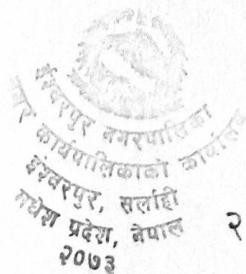 ईश्वरपुर नगरपालिका
नगर कार्यपालिकाको कार्यालय
ईश्वरपुर, सर्लाही
मधेश प्रदेश, नेपाल
२०७३
२